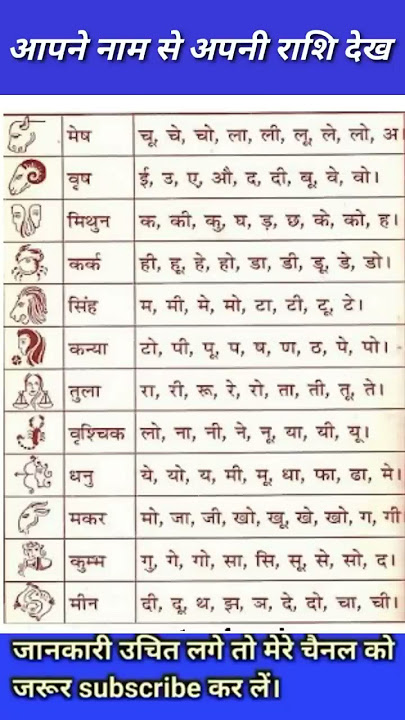 आपने नाम से अपनी राशि देख
मेष चू, चे, चो, ला, ली, लू, ले, लो, अ
वृष ई, उ, ए, औ, द, दी, बू, वे, वो।
मिथुन क, की, कु, घ, ड़, छ, के, को, ह।
कर्क ही, हू, हे, हो, डा, डी, डू, डे, डो।
सिंह म, मी, मे, मो, टा, टी, टू, टे।
कन्या टो, पी, पू, प, ष, ण, ठ, पे, पो।
तुला रा, री, रू, रे, रो, ता, ती, तू, ते।
वृश्चिक लो, ना, नी, ने, नू, या, यी, यू।
धनु ये, यो, य, मी, मू, धा, फा, ढा, मे।
मकर मो, जा, जी, खो, खू, खे, खो, ग, गी
कुम्भ गु, गे, गो, सा, सि, सू, से, सो, द।
मीन दी, दू, थ, झ, ञ, दे, दो, चा, ची।
जानकारी उचित लगे तो मेरे चैनल को
जरूर subscribe कर लें।